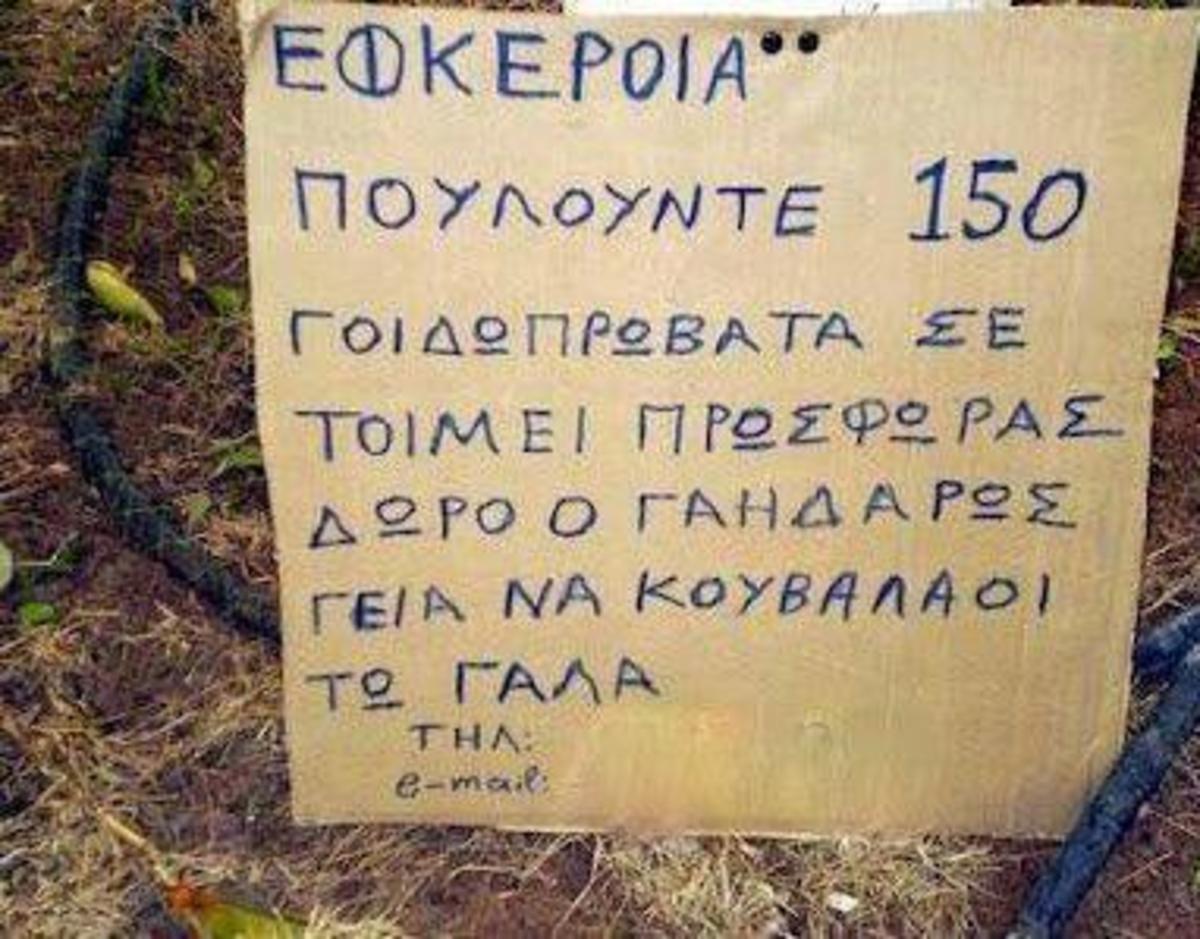 ΕΦΚΕΡΟΙΑ
ΠΟΥΛΟΥΝΤΕ 150
ΓΟΙΔΩΠΡΩΒΑΤΑ ΣΕ
ΤΟΙΜΕΙ ΠΡΩΣΦΩΡΑΣ
ΔΩΡΟ Ο ΓΑΗΔΑΡΩΣ
ΓΕΙΑ ΝΑ ΚΟΥΒΑΛΑΟΙ
ΤΩ ΓΑΛΑ
ΤΗΛ:
e-mail: